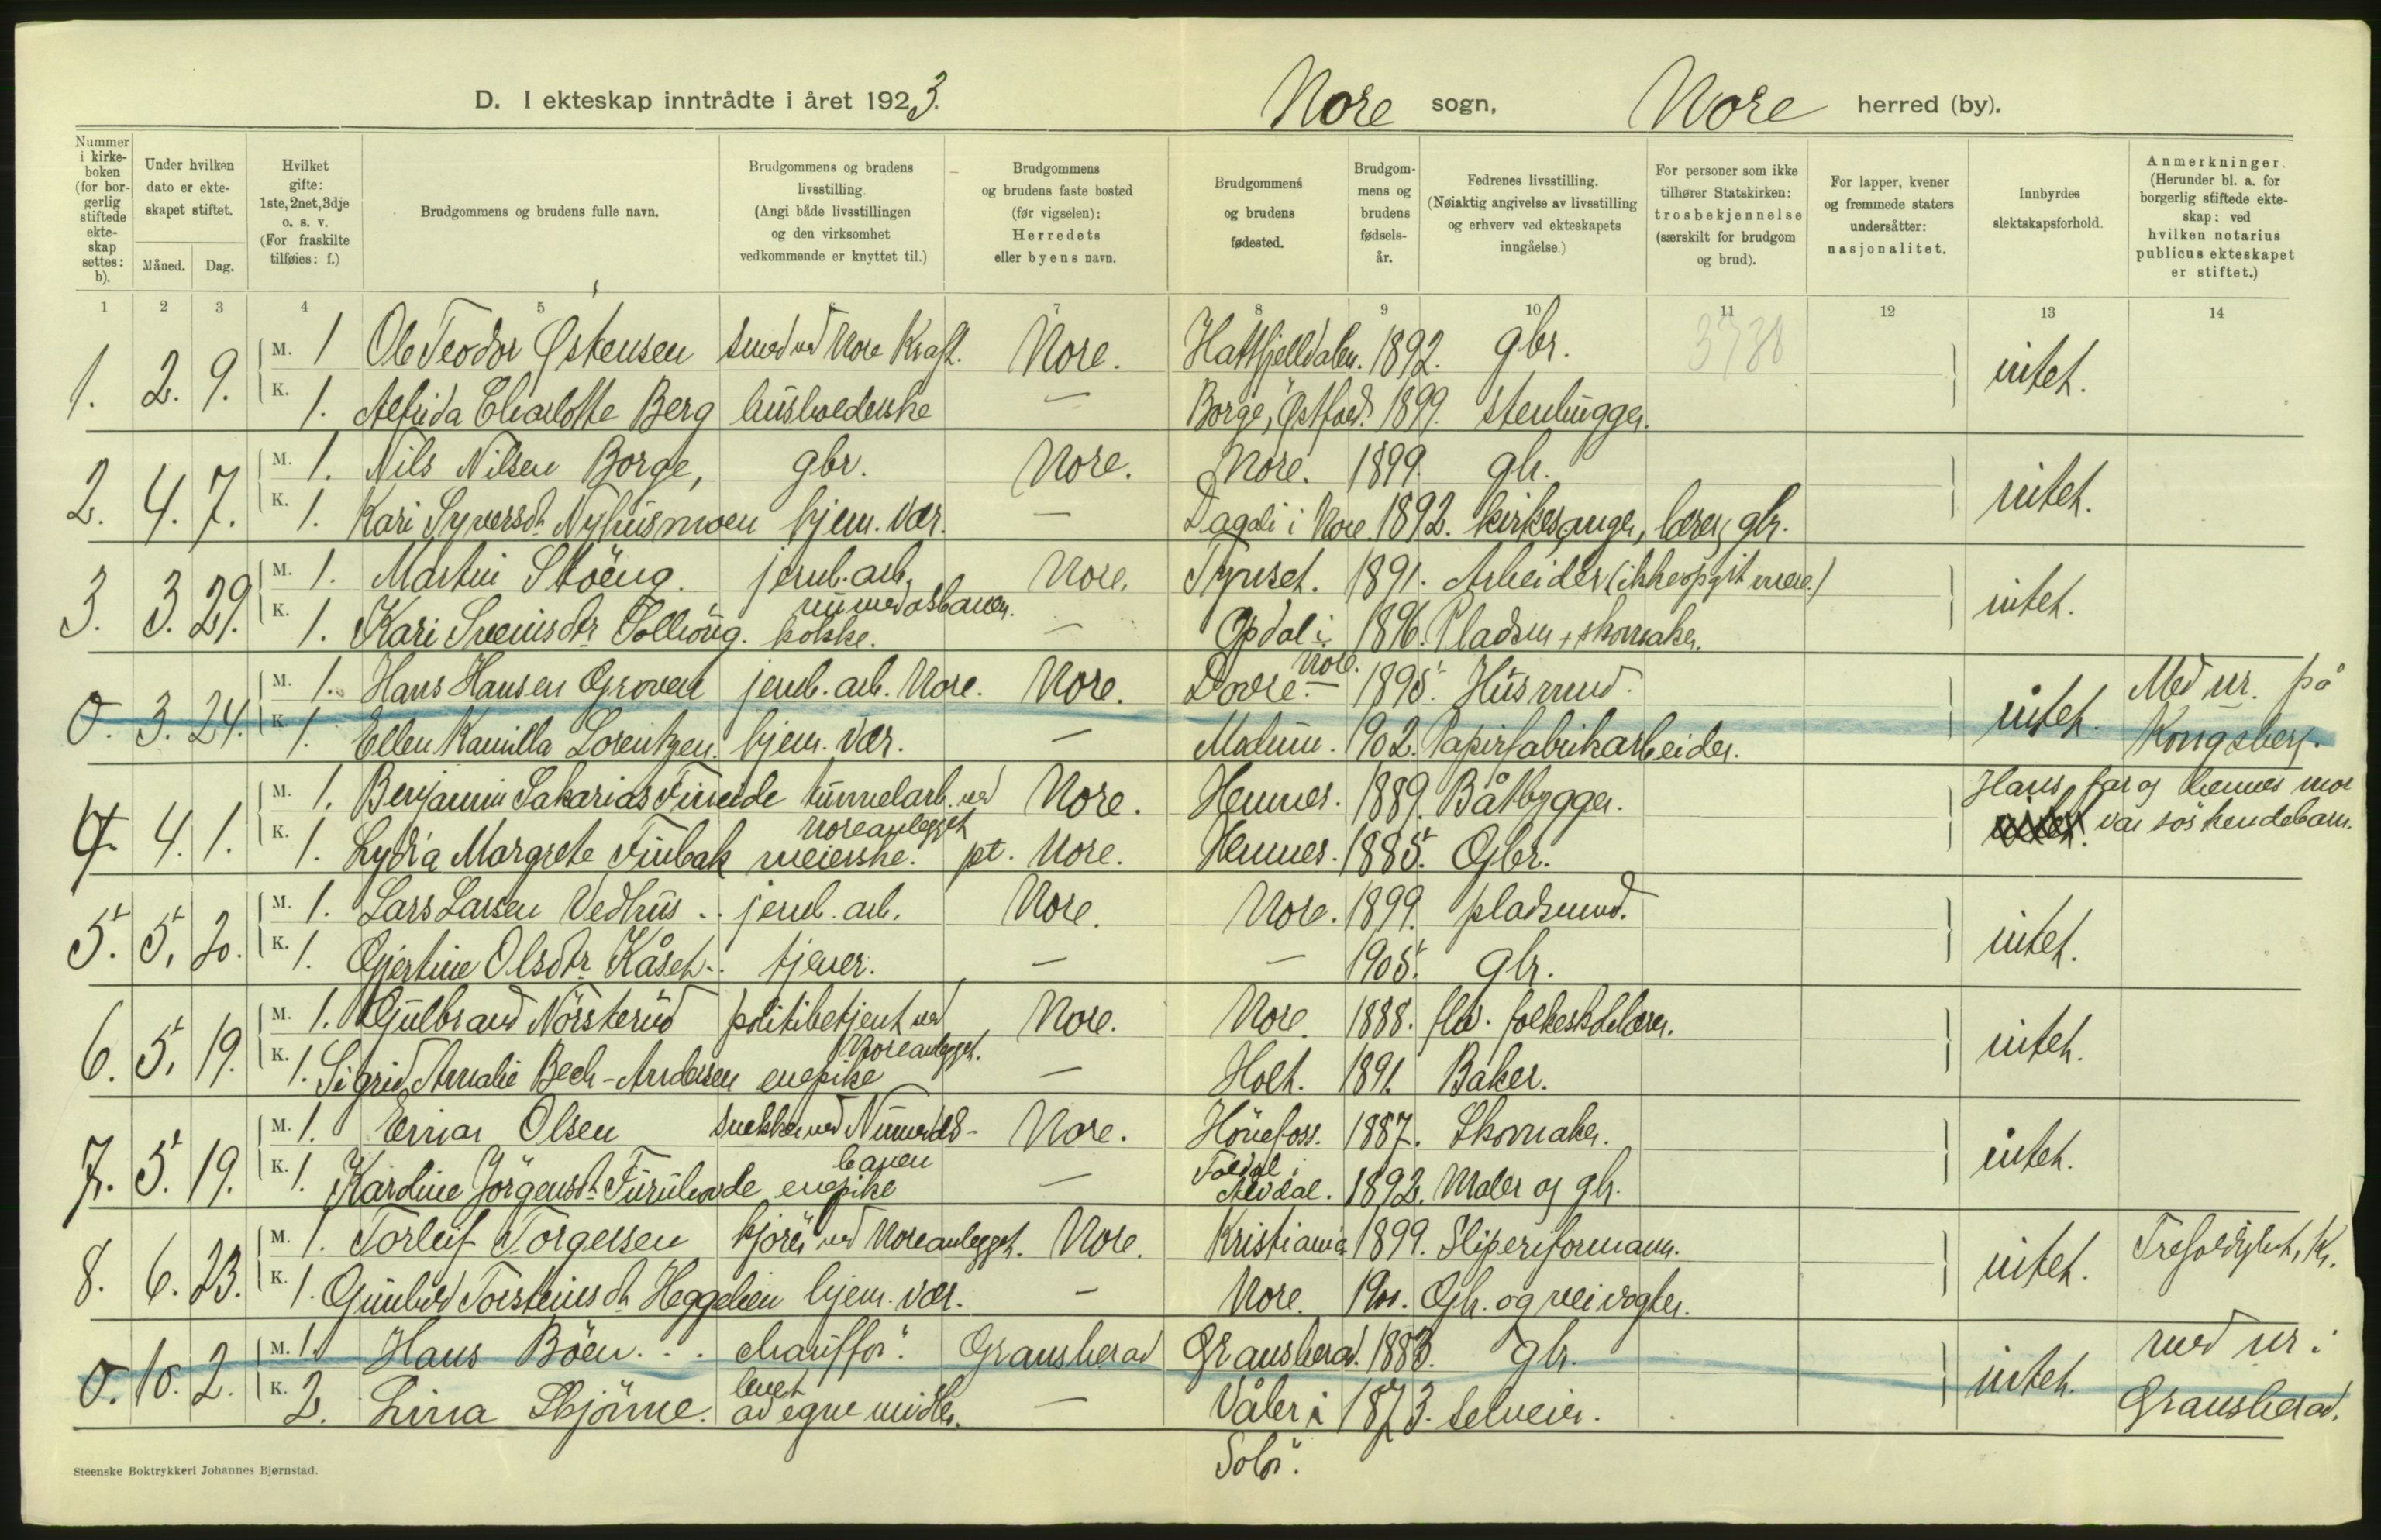 D. I ekteskap inntrådte i året 1923. Nore sogn, Nore herred (by).
Nummer i kirke-boken (for bor-gerlig stiftede ekte-skap settes: b).
Under hvilken dato er ekte-skapet stiftet.
Måned. Dag.
Hvilket gifte: 1ste, 2net, 3dje o. s. v. (For fraskilte tilføies: f.)
Brudgommens og brudens fulle navn.
Brudgommens og brudens livsstilling. (Angi både livsstillingen og den virksomhet vedkommende er knyttet til.)
Brudgommens og brudens faste bosted (før vigselen): Herredets eller byens navn.
Brudgommens og brudens fødested.
Brudgom-mens og brudens fødsels-år.
Fedrenes livsstilling. (Nøiaktig angivelse av livsstilling og erhverv ved ekteskapets inngåelse.)
For personer som ikke tilhører Statskirken: trosbekjennelse (særskilt for brudgom og brud).
For lapper, kvener og fremmede staters undersåtter: nasjonalitet.
Innbyrdes slektskapsforhold.
Anmerkninger. (Herunder bl. a. for borgerlig stiftede ekte-skap: ved hvilken notarius publicus ekteskapet er stiftet.)
1 2 3 4 5 6 7 8 9 10 11 12 13 14
1. 2. 9. M. 1 Ole Teodor Østensen smed ved Nore Kraft. Nore. Hattfjelldalen. 1892. gbr. intet.
K. 1. Alfrida Charlotte Berg husholderske — Borge, Østfold. 1899. stenhugger.
2. 4. 7. M. 1. Nils Nilsen Borge, gbr. Nore. Nore. 1899. gbr. intet.
K. 1. Kari Syversdr. Nyhusmoen hjem. vær. — Dagali i Nore. 1892. kirkesanger, lærer, gbr.
3. 3. 29. M. 1. Martin Stöeng. jernb. arb. Nore. Tynset. 1891. Arbeider (ikke opgit mere.) intet.
numedalsbanen.
K. 1. Kari Sveinsdtr kokke. — Opdal i Nore. 1896. Pladsm. + skomaker.
0. 3. 24. M. 1. Hans Hansen Groven jernb. arb. Nore. Nore. Dovre. — 1895. Husmnd. intet. Med nr. på
K. 1. Ellen Kamilla Lorentzen. hjem. vær. — Modum. 1902. Papirfabrikarbeider. Kongsberg.
4. 4. 1. M. 1. Benjamin Sakarias Fineide tunnelarb. ved Noreanlegget Nore. Hemnes. 1889. Båtbygger. Hans far og hennes mor
K. 1. Lydia Margrete Finbak meierske. pt. Nore. Hemnes. 1885. Gbr. intet. var söskendebarn.
5. 5. 20. M. 1. Lars Larsen Vedhus.. jernb. arb. Nore. Nore. 1899. pladsmnd. intet.
K. 1. Gjertine Olsdtr Kåset.. tjener. — — 1905. gbr.
6. 5. 19. M. 1. Gulbrand Nörsterud politibetjent ved Noreanlegget. Nore. Nore. 1888. fhv. folkeskolelærer. intet.
K. 1. Sigrid Amalie Bech-Andersen enepike — Holt. 1891. Baker.
7. 5. 19. M. 1. Einar Olsen snekker ved Numedals-banen Nore. Hönefoss. 1887. Skomaker. intet.
K. 1. Karoline Jörgensdr. Furuhovde enepike — Foldal i Alvdal. 1892. Maler og gbr.
8. 6. 23. M. 1. Torleif Torgersen kjörer ved Noreanlegget. Nore. Kristiania 1899. Sliperiformann. intet. Trefoldighet, Kr.
K. 1. Gunbör Torsteinsdr. Heggelien hjem. vær. — Nore. 1901. Gbr. og veivogter.
0. 10. 2. M. 1. Hans Böen... chauffør. Gransherad Gransherad. 1883. gbr. intet. med nr i
K. 2. Lina Skjönne. levet av egne midler. — Våler i Solör. 1873. selveier. Gransherad.
Steenske Boktrykkeri Johannes Bjørnstad.